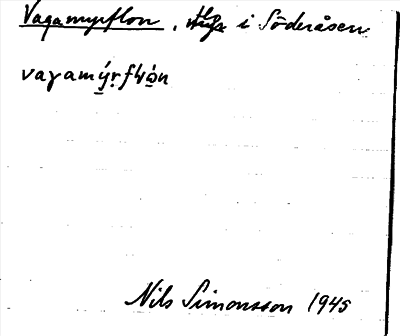 Vagamyrflon, i Söderåsen
vagamýrflón
Nils Simonsson 1945